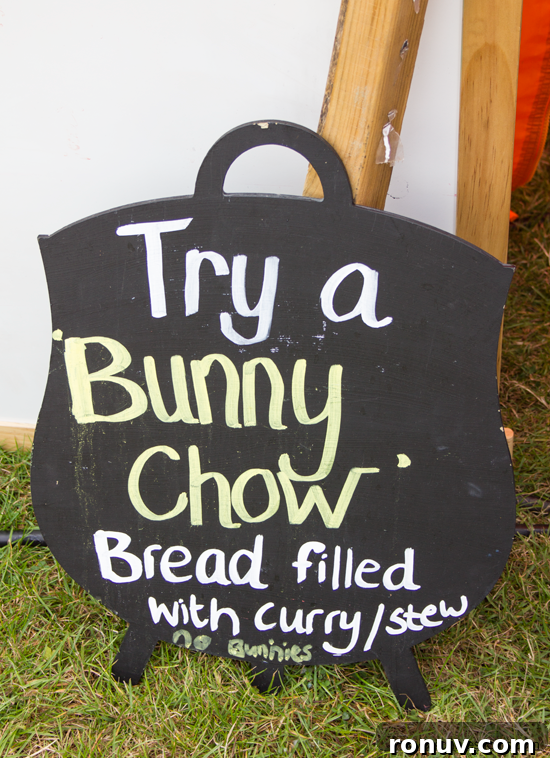 Try a
'Bunny
Chow'
Bread filled
with curry/stew
no Bunnies
ronuv.com